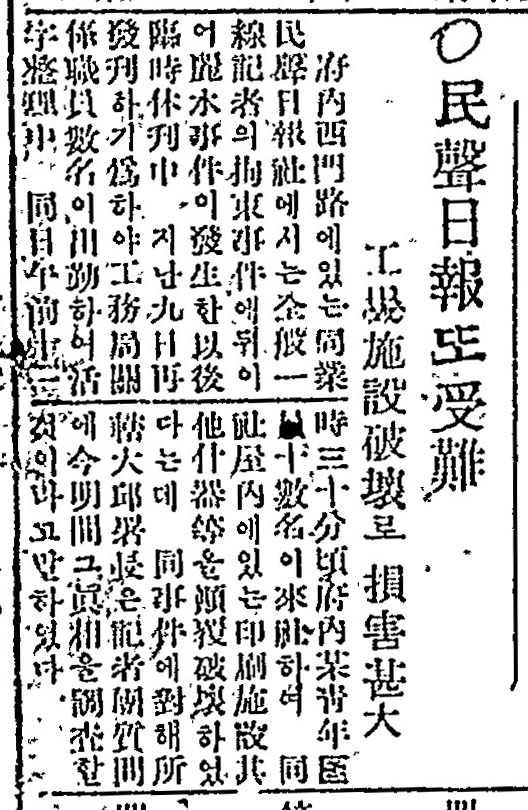 ○ 民聲日報또受難
工場施設破壞로 損害甚大
府內西門路에있는同業
民聲日報社에서는全般一
線記者의拘束事件에뒤이
어麗水事件이發生한以後
臨時休刊中 지난九日再
發刊하기爲하야工務局關
係職員數名이出勤하여活
字整理中 同日午前十二
時三十分頃府內某靑年團
員十數名이來社하여 同
社屋內에있는印刷施設其
他什器等을顚覆破壞하였
다는데 同事件에對해所
轄大邱署長은記者團質問
에今明間그眞相을調査할
것이라고말하였다